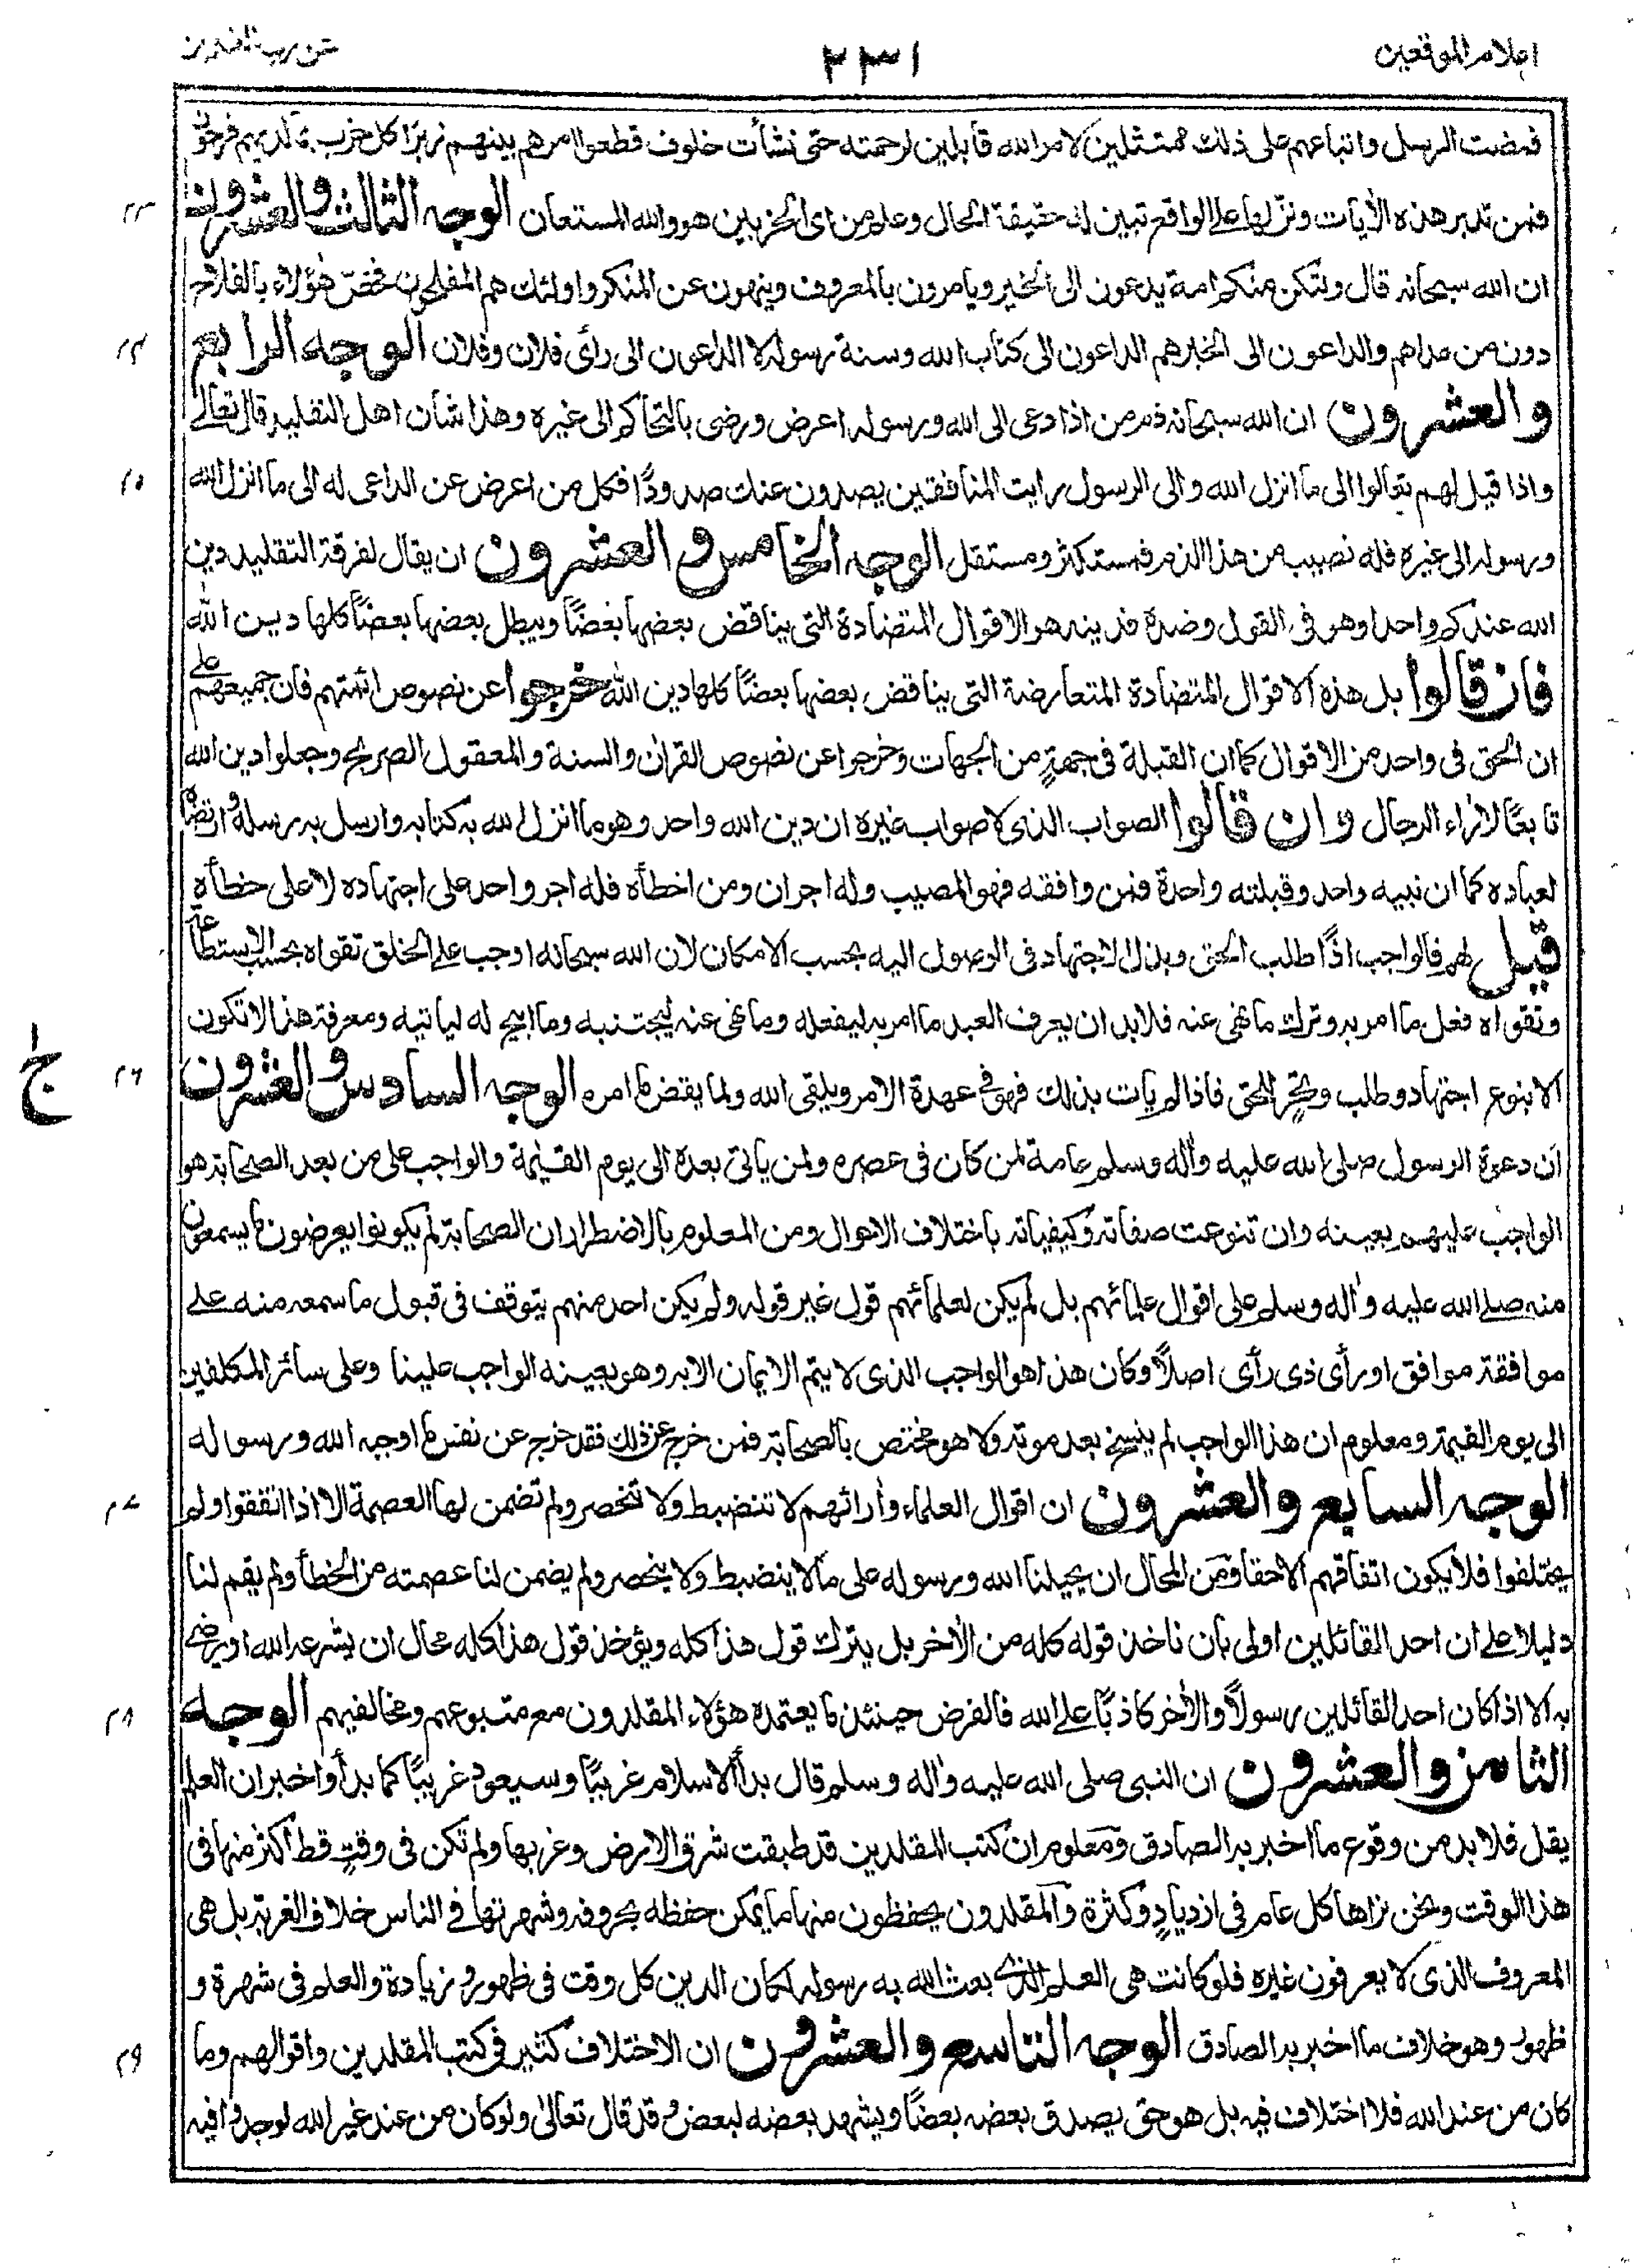 اعلام الموقعين
٢٣١
عن رب العلمين
فمضت الرسل واتباعهم على ذلك ممتثلين لامر الله قابلين لرحمته حتى نشأت خلوف قطعوا امرهم بينهم زبرًا كل حزب بما لديهم فرحون
فمن تدبر هذه الأيات ونزّلها على الواقع تبين له حقيقة الحال وعلم من اى الحزبين هو والله المستعان الوجه الثالث والعشرون
٢٣
ان الله سبحانه قال ولتكن منكم امة يدعون الى الخير ويامرون بالمعروف وينهون عن المنكر واولئك هم المفلحون فخصّ هؤلاء بالفلاح
دون من عداهم والداعون الى الخير هم الداعون الى كتاب الله وسنة رسوله لا الداعون الى رأى فلان وفلان الوجه الرابع
٢٤
والعشرون ان الله سبحانه ذم من اذا دعى الى الله ورسوله اعرض ورضى بالتحاكم الى غيره وهذا شأن اهل التقليد قال تعالى
واذا قيل لهم تعالوا الى ما انزل الله والى الرسول رايت المنافقين يصدون عنك صدودًا فكل من اعرض عن الداعى له الى ما انزل الله
٢٥
ورسوله الى غيره فله نصيب من هذا الذم فمستكثر ومستقل الوجه الخامس والعشرون ان يقال لفرقة التقليد دين
الله عندكم واحد او هو فى القول وضده فدينه هو الاقوال المتضادة التى يناقض بعضها بعضًا ويبطل بعضها بعضًا كلها دين الله
فان قالوا بل هذه الاقوال المتضادة المتعارضة التى يناقض بعضها بعضًا كلها دين الله خرجوا عن نصوص ائمتهم فان جميعهم على
ان الحق فى واحد من الاقوال كما ان القبلة فى جهةٍ من الجهات وخرجوا عن نصوص القرأن والسنة والمعقول الصريح وجعلوا دين الله
تابعًا لأراء الرجال وان قالوا الصواب الذى لا صواب غيره ان دين الله واحد وهو ما انزل الله به كتابه وارسل به رسله وارتضاه
لعباده كما ان نبيه واحد وقبلته واحدة فمن وافقه فهو المصيب وله اجران ومن اخطأه فله اجر واحد على اجتهاده لا على خطأه
قيل لهم فالواجب اذًا طلب الحق وبذل الاجتهاد فى الوصول اليه بحسب الامكان لان الله سبحانه اوجب على الخلق تقواه بحسب الاستطاعة
وتقواه فعل ما امر به وترك ما نهى عنه فلا بد ان يعرف العبد ما امر به ليفعله وما نهى عنه ليجتنبه وما ابيح له لياتيه ومعرفة هذا لا تكون
الا بنوع اجتهاد وطلب وتحرٍّ للحق فاذا لم يات بذلك فهو فى عهدة الامر ويلقى الله ولما يقض ما امره الوجه السادس والعشرون
٢٦
ج
ان دعوة الرسول صلى الله عليه وأله وسلم عامة لمن كان فى عصره ولمن ياتى بعده الى يوم القيمة والواجب على من بعد الصحابة هو
الواجب عليهم بعينه وان تنوعت صفاته وكيفياته باختلاف الاحوال ومن المعلوم بالاضطرار ان الصحابة لم يكونوا يعرضون ما يسمعون
منه صلى الله عليه وأله وسلم على اقوال علمائهم بل لم يكن لعلمائهم قول غير قوله ولم يكن احد منهم يتوقف فى قبول ما سمعه منه على
موافقة موافق او رأى ذى رأى اصلًا وكان هذا هو الواجب الذى لا يتم الايمان الا به وهو بعينه الواجب علينا وعلى سائر المكلفين
الى يوم القيمة ومعلوم ان هذا الواجب لم ينسخ بعد موته ولا هو مختص بالصحابة فمن خرج عن ذلك فقد خرج عن نفس ما اوجبه الله ورسوله
الوجه السابع والعشرون ان اقوال العلماء وأرائهم لا تنضبط ولا تنحصر ولم تضمن لها العصمة الا اذا اتفقوا ولم
٢٧
يختلفوا فلا يكون اتفاقهم الا حقا ومن المحال ان يحيلنا الله ورسوله على ما لا ينضبط ولا ينحصر ولم يضمن لنا عصمته من الخطأ ولم يقم لنا
دليلا على ان احد القائلين اولى بان ناخذ قوله كله من الأخر بل يترك قول هذا كله ويؤخذ قول هذا كله محال ان يشرعه الله او يرضى
به الا اذا كان احد القائلين رسولًا والأخر كاذبًا على الله فالفرض حينئذ ما يعتمده هؤلاء المقلدون مع متبوعهم ومخالفيهم الوجه
٢٨
الثامن والعشرون ان النبى صلى الله عليه وأله وسلم قال بدأ الاسلام غريبًا وسيعود غريبًا كما بدأ واخبر ان العلم
يقل فلا بد من وقوع ما اخبر به الصادق ومعلوم ان كتب المقلدين قد طبقت شرق الارض وغربها ولم تكن فى وقتٍ قط اكثر منها فى
هذا الوقت ونحن نراها كل عام فى ازديادٍ وكثرة والمقلدون يحفظون منها ما يمكن حفظه بحروفه وشهرتها فى الناس خلاف الغربة بل هى
المعروف الذى لا يعرفون غيره فلو كانت هى العلم الذى بعث الله به رسوله لكان الدين كل وقت فى ظهور وزيادة والعلم فى شهرة و
ظهور وهو خلاف ما اخبر به الصادق الوجه التاسع والعشرون ان الاختلاف كثير فى كتب المقلدين واقوالهم وما
٢٩
كان من عند الله فلا اختلاف فيه بل هو حق يصدق بعضه بعضًا ويشهد بعضه لبعض وقد قال تعالى ولو كان من عند غير الله لوجدوا فيه